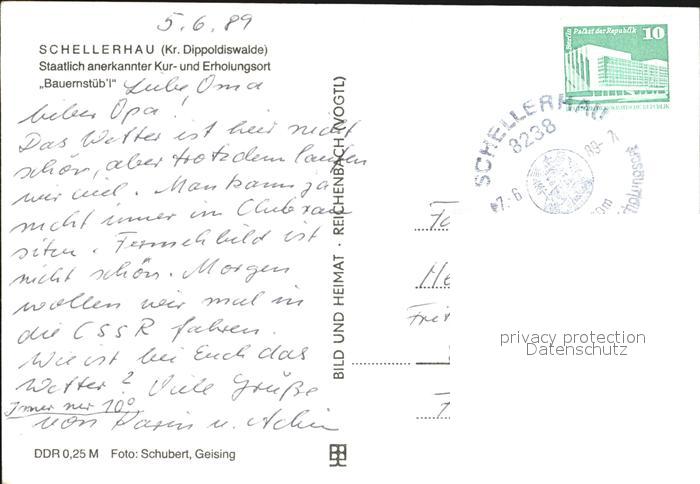 5.6.89
SCHELLERHAU (Kr. Dippoldiswalde)
Staatlich anerkannter Kur- und Erholungsort
„Bauernstüb'l"
Liebe Oma
lieber Opa!
Das Wetter ist hier nicht
schön, aber trotzdem laufen
wir viel. Man kann ja
nicht immer im Clubraum
sitzen. Fernsehbild ist
nicht schön. Morgen
wollen wir mal in
die CSSR fahren.
Wie ist bei Euch das
Wetter? Viele Grüße
Immer nur 10°
von Karin u. Achim
DDR 0,25 M Foto: Schubert, Geising
BILD UND HEIMAT · REICHENBACH (VOGTL)
Berlin Palast der Republik
10
DEUTSCHE DEMOKRATISCHE REPUBLIK
SCHELLERHAU
8238
Fa
He
Frit
privacy protection
Datenschutz